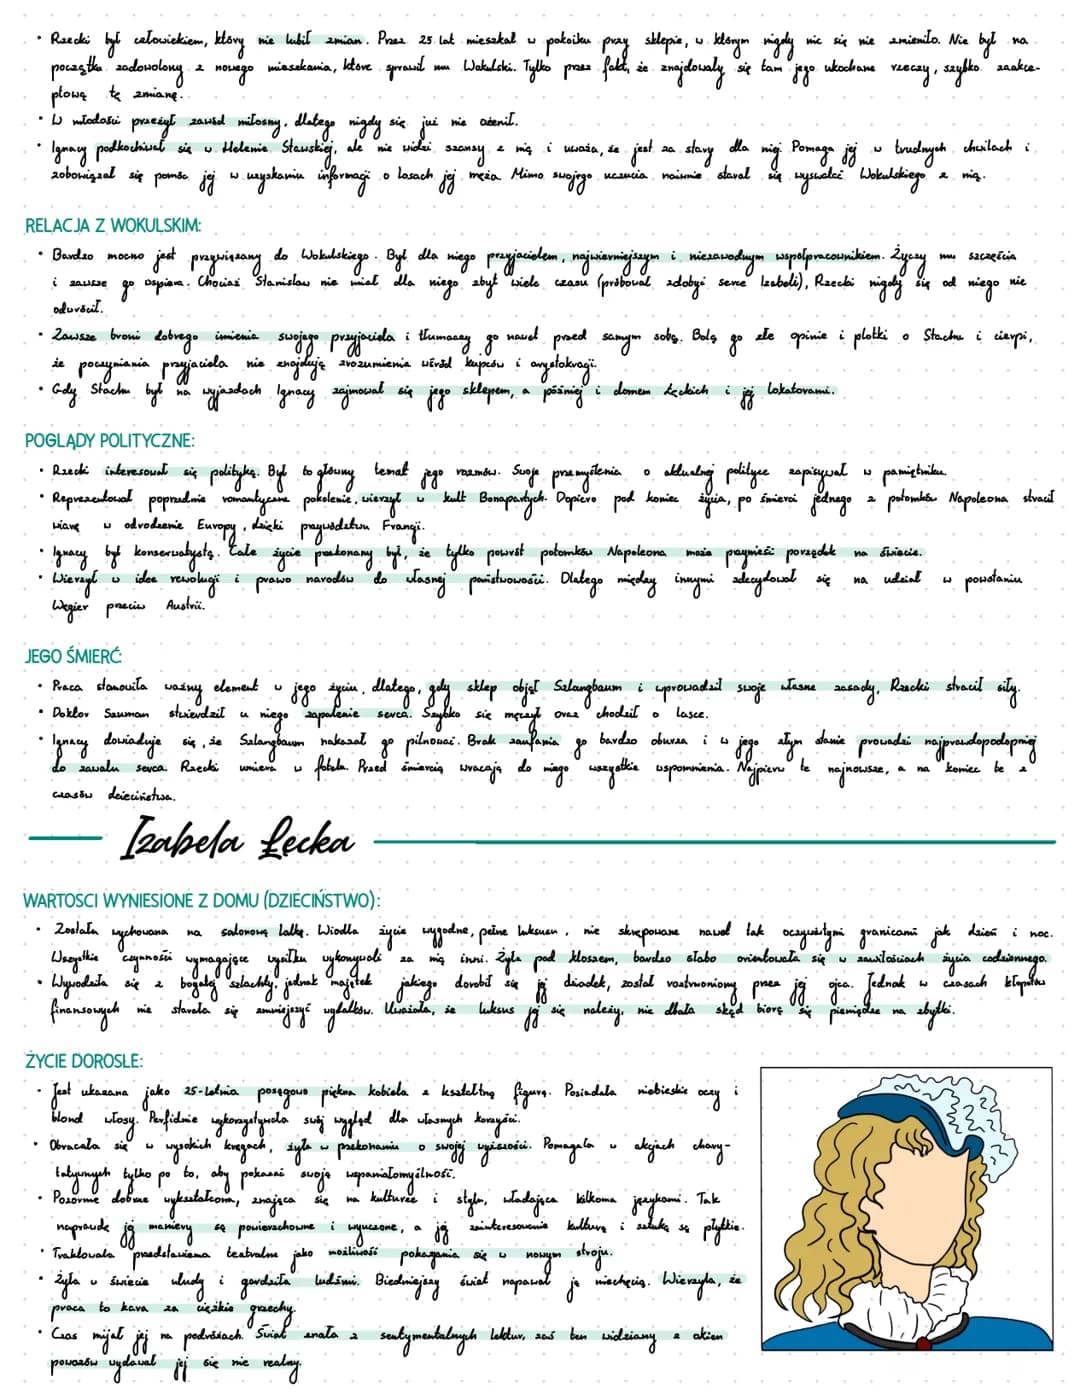 • Rzecki był człowiekiem, który nie lubił zmian. Przez 25 lat mieszkał w pokoiku przy sklepie, w którym nigdy nic się nie zmieniło. Nie był na
początku zadowolony z nowego mieszkania, które sprawił mu Wokulski. Tylko przez fakt, że znajdowały się tam jego ukochane rzeczy, szybko zaakce-
ptował tę zmianę.
• W młodości przeżył zawód miłosny, dlatego nigdy się już nie ożenił.
• Ignacy podkochiwał się w Helenie Stawskiej, ale nie widzi szansy z nią i uważa, że jest za stary dla niej. Pomaga jej w trudnych chwilach i
zobowiązał się pomóc jej w uzyskaniu informacji o losach jej męża. Mimo swojego uczucia naiwnie starał się wyswatać Wokulskiego z nią.
RELACJA Z WOKULSKIM:
• Bardzo mocno jest przywiązany do Wokulskiego. Był dla niego przyjacielem, najwierniejszym i niezawodnym współpracownikiem. Życzy mu szczęścia
i zawsze go wspiera. Chociaż Stanisław nie miał dla niego zbyt wiele czasu (próbował zdobyć serce Izabeli), Rzecki nigdy się od niego nie
odwrócił.
• Zawsze broni dobrego imienia swojego przyjaciela i tłumaczy go nawet przed samym sobą. Bolą go złe opinie i plotki o Stachu i cierpi,
że poczynania przyjaciela nie znajdują zrozumienia wśród kupców i arystokracji.
• Gdy Stachu był na wyjazdach Ignacy zajmował się jego sklepem, a później i domem Łęckich i jej lokatorami.
POGLĄDY POLITYCZNE:
• Rzecki interesował się polityką. Był to główny temat jego rozmów. Swoje przemyślenia o aktualnej polityce zapisywał w pamiętniku.
• Reprezentował poprzednie romantyczne pokolenie, wierzył w kult Bonapartych. Dopiero pod koniec życia, po śmierci jednego z potomków Napoleona stracił
wiarę w odrodzenie Europy, dzięki przywództwu Francji.
• Ignacy był konserwatystą. Całe życie przekonany był, że tylko powrót potomków Napoleona może przynieść porządek na świecie.
• Wierzył w idee rewolucji i prawo narodów do własnej państwowości. Dlatego między innymi zdecydował się na udział w powstaniu
Węgier przeciw Austrii.
JEGO ŚMIERĆ:
• Praca stanowiła ważny element w jego życiu, dlatego, gdy sklep objął Szlangbaum i wprowadził swoje własne zasady, Rzecki stracił siły.
• Doktor Szuman stwierdził u niego zapalenie serca. Szybko się męczył oraz chodził o lasce.
• Ignacy dowiaduje się, że Szlangbaum nakazał go pilnować. Brak zaufania go bardzo oburza i w jego złym stanie prowadzi najprawdopodobniej
do zawału serca. Rzecki umiera w fotelu. Przed śmiercią wracają do niego wszystkie wspomnienia. Najpierw te najnowsze, a na koniec te z
czasów dzieciństwa.
Izabela Łęcka
WARTOSCI WYNIESIONE Z DOMU (DZIECIŃSTWO):
• Została wychowana na salonową lalkę. Wiodła życie wygodne, pełne luksusu, nie skrępowane nawet tak oczywistymi granicami jak dzień i noc.
Wszystkie czynności wymagające wysiłku wykonywali za nią inni. Żyła pod kloszem, bardzo słabo orientowała się w zawiłościach życia codziennego.
• Wywodziła się z bogatej szlachty, jednak majątek jakiego dorobił się jej dziadek, został roztrwoniony przez jej ojca. Jednak w czasach kłopotów
finansowych nie starała się zmniejszyć wydatków. Uważała, że luksus jej się należy, nie dbała skąd biorą się pieniądze na zbytki.
ŻYCIE DOROSŁE:
• Jest ukazana jako 25-letnia posągowo piękna kobieta z kształtną figurą. Posiadała niebieskie oczy i
blond włosy. Perfidnie wykorzystywała swój wygląd dla własnych korzyści.
• Obracała się w wysokich kręgach, żyła w przekonaniu o swojej wyższości. Pomagała w akcjach chary-
tatywnych tylko po to, aby pokazać swoją wspaniałomyślność.
• Pozornie dobrze wykształcona, znająca się na kulturze i stylu, władająca kilkoma językami. Tak
naprawdę jej maniery są powierzchowne i wyuczone, a jej zainteresowania kulturą i sztuką są płytkie.
• Traktowała przedstawienia teatralne jako możliwość pokazania się w nowym stroju.
• Żyła w świecie ułudy i gardziła ludźmi. Biedniejszy świat napawał ją niechęcią. Wierzyła, że
praca to kara za ciężkie grzechy.
• Czas mijał jej na podróżach. Świat znała z sentymentalnych lektur, zaś ten widziany z okien
powozów wydawał jej się nie realny.